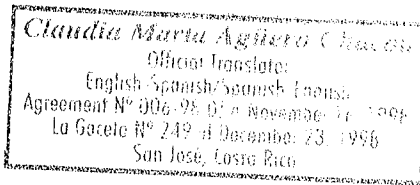 Claudia María Agüero Chacón
Official Translator
English-Spanish/Spanish-English
Agreement Nº 006-96 DJ November 1996
La Gaceta Nº 249 of December 23, 1996
San José, Costa Rica